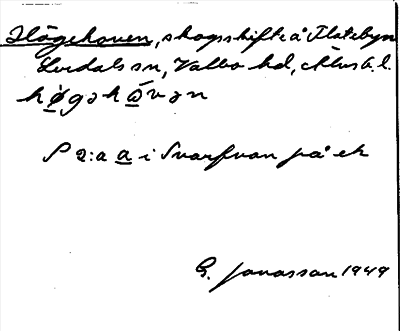 Högehoven, skogsskifte å Flatebyn
Lerdals sn, Valbo hd, Älvsb. l.
høgəhɷvən
P 2:a a i Svarfvan på ek
G. Jonasson 1949